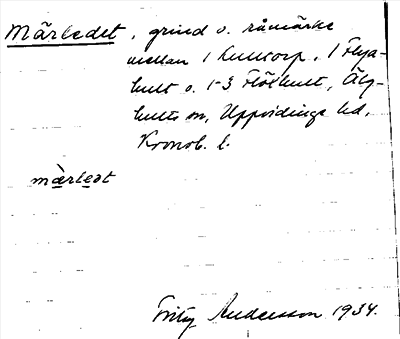 Märledet, grind o. råmärke
mellan 1 hultorp, 1 Flya-
hult o. 1-3 Flöxhult, Älg-
hults sn, Uppvidinge hd,
Kronob. l.
märledt
Fritz Andersson 1934.